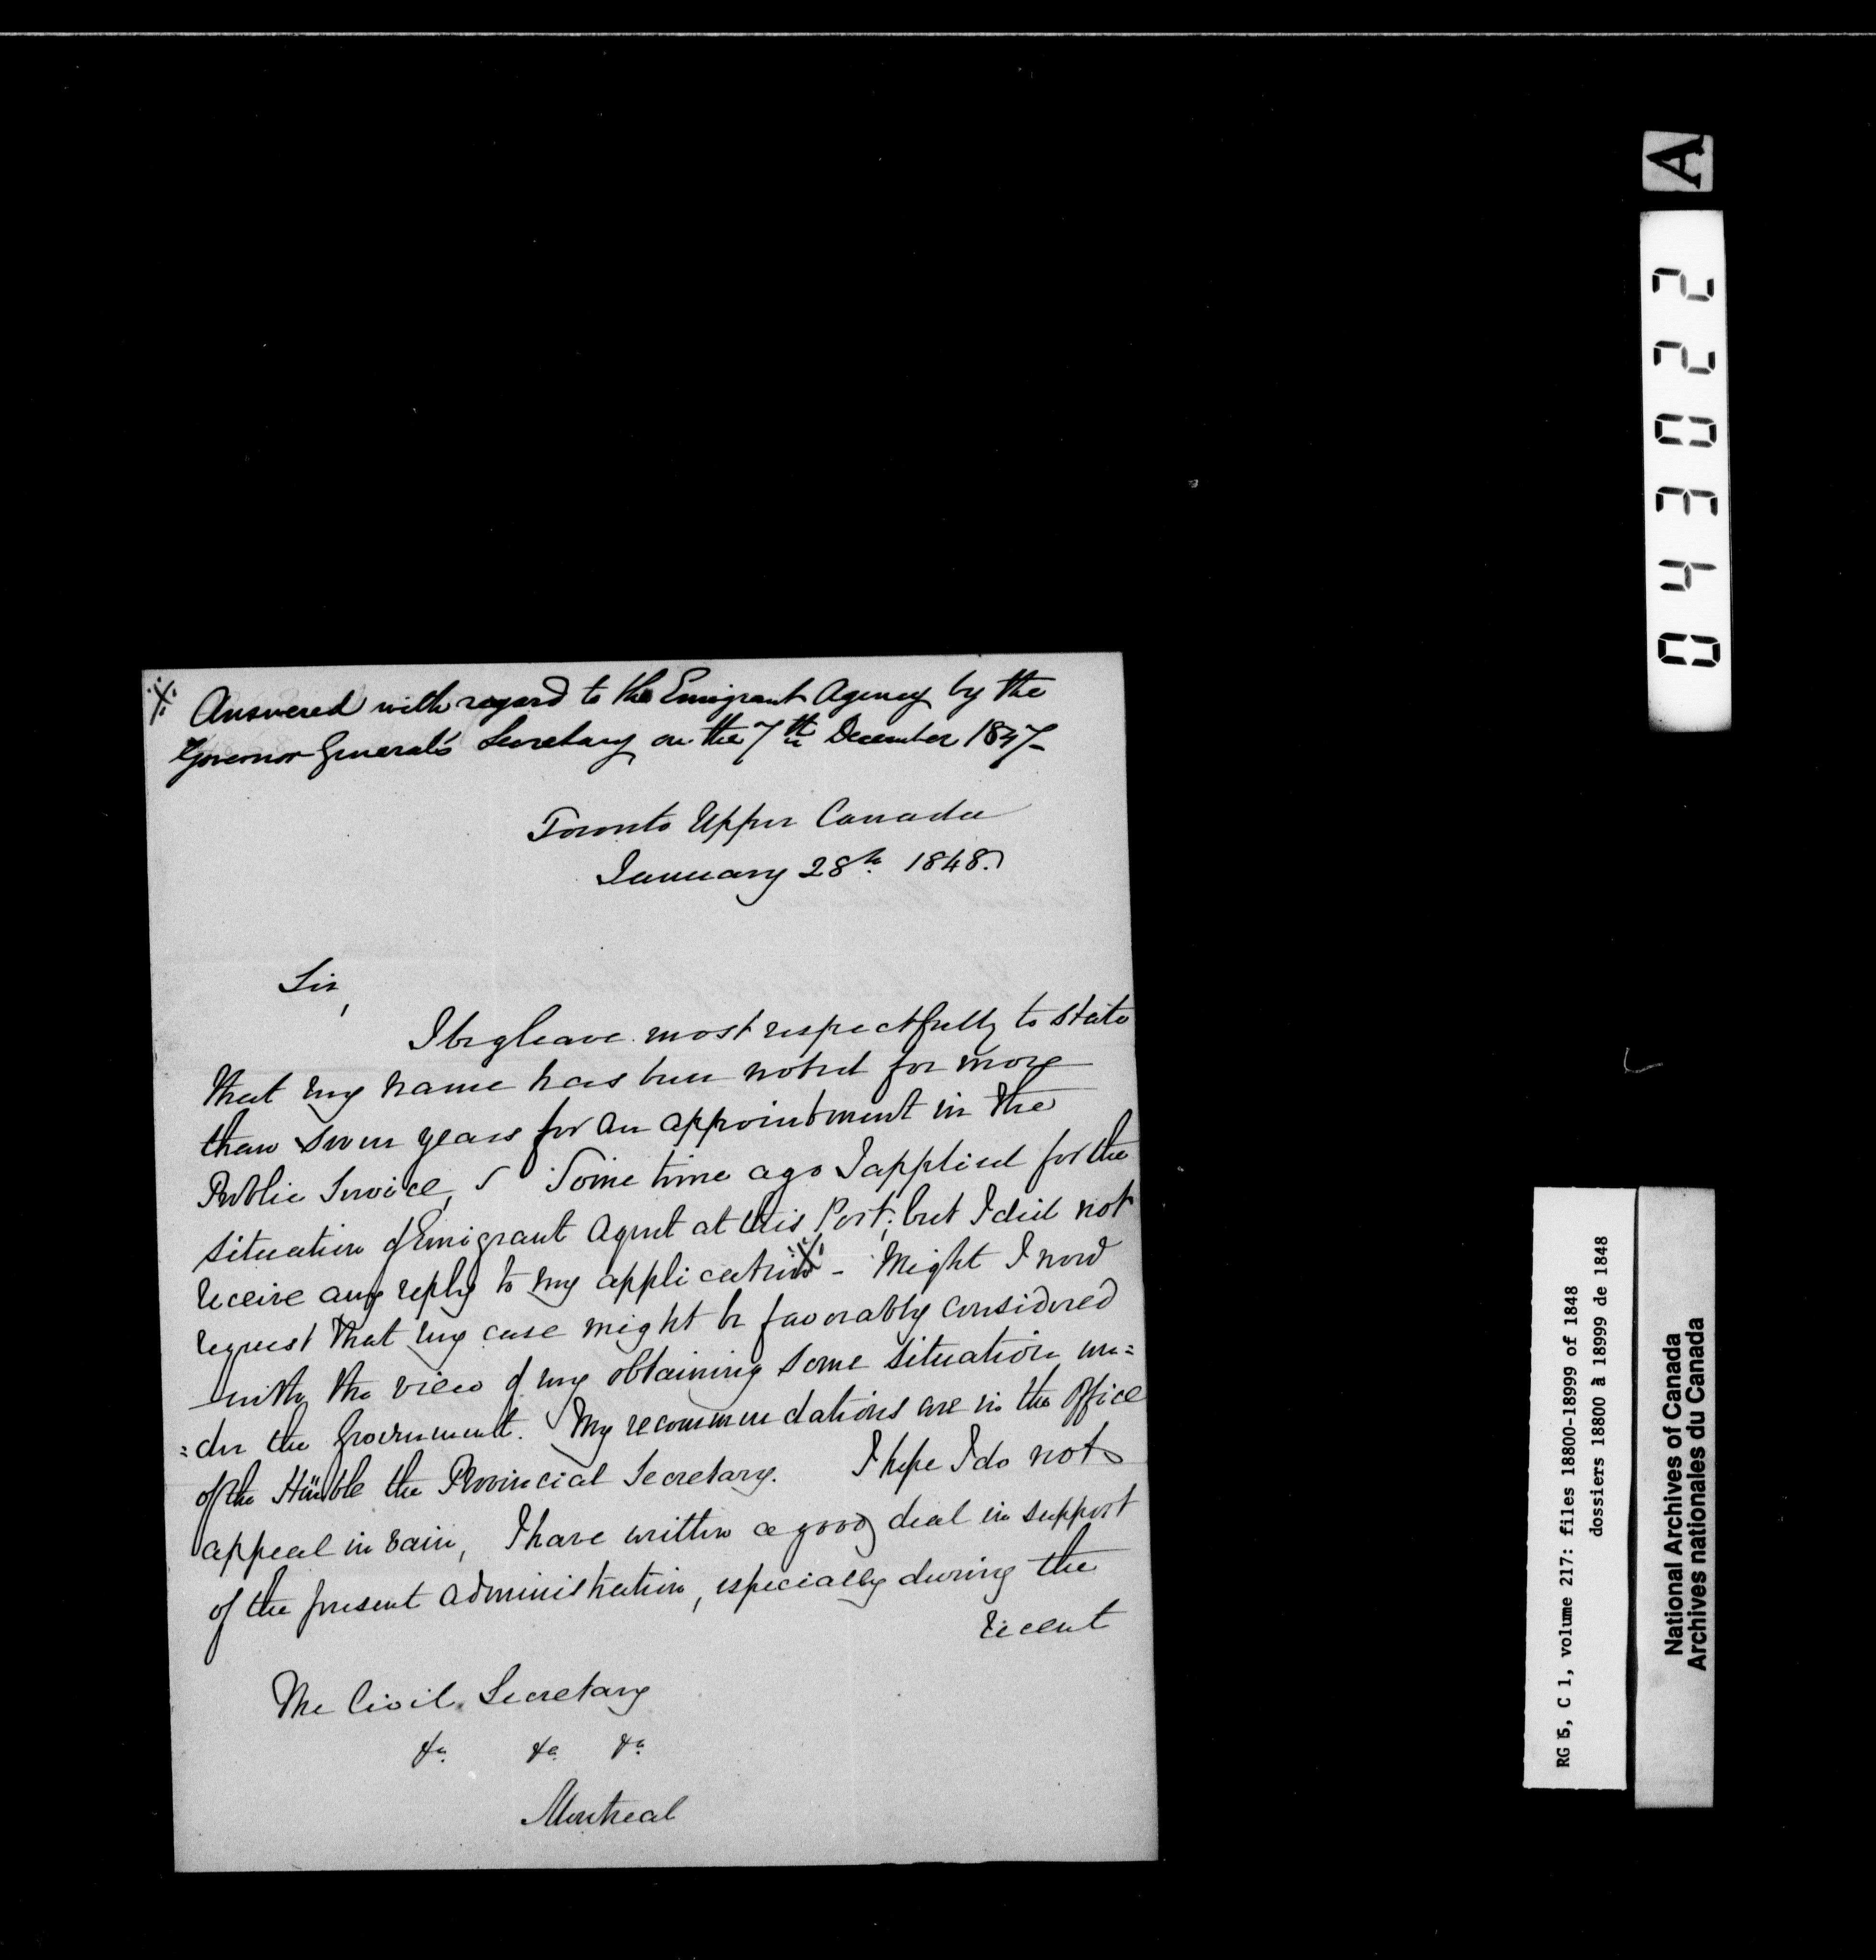 ※ Answered with regard to the Emigrant Agency by the
Governor General's Secretary on the 7th December 1847—
Toronto Upper Canada
January 28th 1848.
Sir,
I beg leave most respectfully to state
that my name has been noted for more
than seven years for an appointment in the
Public Service, & Some time ago I applied for the
situation of Emigrant Agent at this Port; but I did not
receive any reply to my application※ – Might I now
request that my case might be favorably considered
with the view of my obtaining some situation un=
=der the Government. My recommendations are in the Office
of the Honble the Provincial Secretary. I hope I do not
appeal in vain, I have written a good deal in support
of the present administration, especially during the
recent
The Civil Secretary
&c. &c. &c.
Montreal
A
0 4 3 0 2 2
RG 5, C 1, volume 217: files 18800-18999 of 1848
dossiers 18800 à 18999 de 1848
National Archives of Canada
Archives nationales du Canada